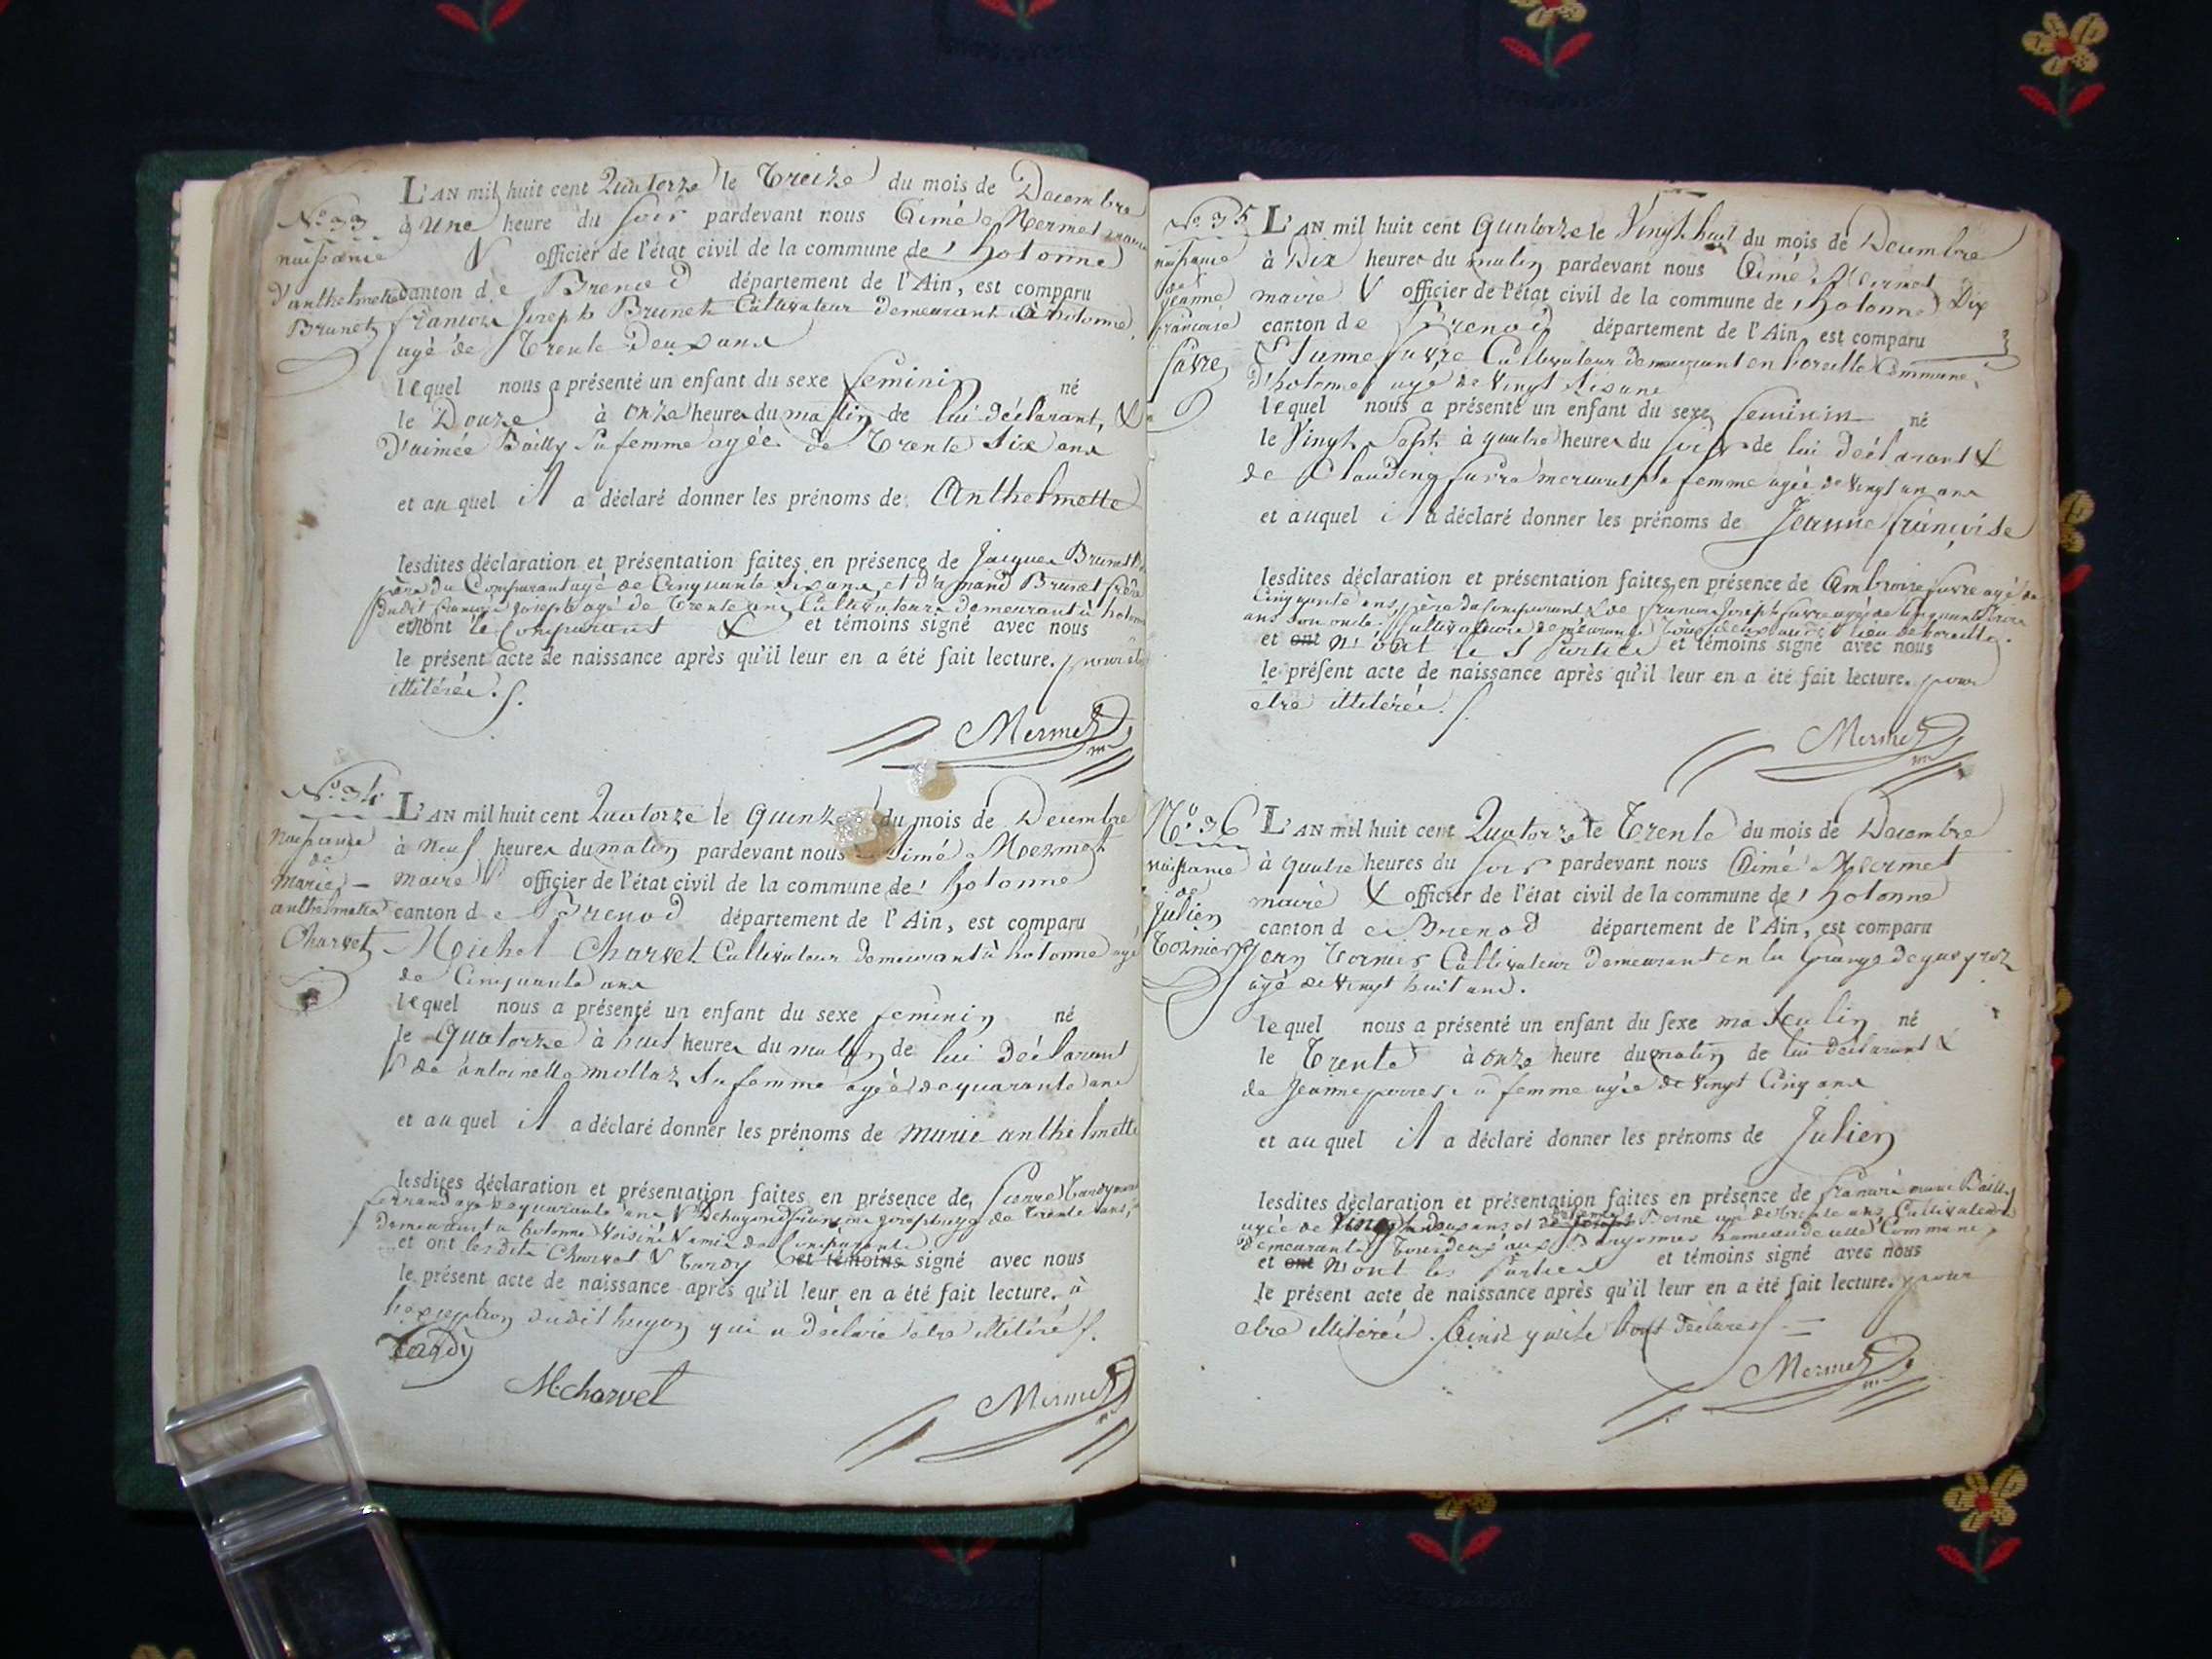 N.o 33
naissance
d'anthelmette
Brunet
L'AN mil huit cent Quatorze le Treize du mois de Decembre
à Une heure du soir pardevant nous Aimé Mermet maire
& officier de l'état civil de la commune de hotonne
canton de Brenod département de l'Ain, est comparu
françois Joseph Brunet Cultivateur demeurant à hotonne
agé de Trente Deux ans
lequel nous a présenté un enfant du sexe feminin né
le Douze à onze heures du matin de lui déclarant, &
D'aimée Bailly sa femme agée de Trente Six ans
et au quel il a déclaré donner les prénoms de Anthelmette
lesdites déclaration et présentation faites en présence de Jacques Brunet
père du Comparant agé de Cinquante Six ans, et d'armand Brunet frère
dudit françois joseph agé de Trente ans Cultivateurs demeurant à hotonne
et n'ont le Comparant & et témoins signé avec nous
le présent acte de naissance après qu'il leur en a été fait lecture. pour etre
illitérés.
Mermet
N.o 34
Naissance
de
marie
anthelmette
Charvet
L'AN mil huit cent Quatorze le Quinze du mois de Decembre
à Neuf heures du matin pardevant nous Aimé Mermet
maire & officier de l'état civil de la commune de hotonne
canton de Brenod département de l'Ain, est comparu
Michel Charvet Cultivateur demeurant à hotonne agé
de Cinquante ans
lequel nous a présenté un enfant du sexe feminin né
le Quatorze à huit heures du matin de lui déclarant
& de antoinette mollaz sa femme agée de quarante ans
et au quel il a déclaré donner les prénoms de marie anthelmette
lesdites déclaration et présentation faites en présence de, pierre Tardy
fernand agé de quarante ans & De hugon françois joseph agé de Trente ans,
demeurant à hotonne Voisins & amis du Comparant
et ont lesdits Charvet & Tardy et témoins signé avec nous
le présent acte de naissance après qu'il leur en a été fait lecture. à
l'exception dudit hugon qui a déclaré etre illitéré
Tardy
M charvet
Mermet
N.o 35
naissance
de
jeanne
francoise
favre
L'AN mil huit cent Quatorze le Vingt huit du mois de Decembre
à Dix heures du matin pardevant nous Aimé Mermet
maire & officier de l'état civil de la commune de hotonne Dix
canton de Brenod département de l'Ain, est comparu
Etienne favre Cultivateur demeurant en Commune
d'hotonne agé de Vingt Six ans
lequel nous a présenté un enfant du sexe feminin né
le Vingt Sept à quatre heures du soir de lui déclarant &
de Claudine favre sa femme agée de Vingt un ans
et auquel il a déclaré donner les prénoms de Jeanne françoise
lesdites déclaration et présentation faites en présence de Ambroise favre agé de
Cinquante ans, père du Comparant & de françois Joseph favre agé de Cinquante trois
ans son oncle. Cultivateurs demeurant Tous deux audit lieu
et ont n'ont les Parties et témoins signé avec nous
le présent acte de naissance après qu'il leur en a été fait lecture. pour
etre illitérés.
Mermet
N.o 36
naissance
de
Julien
Tornier
L'AN mil huit cent Quatorze le Trente du mois de Decembre
à quatre heures du soir pardevant nous Aimé Mermet
maire & officier de l'état civil de la commune de hotonne
canton de Brenod département de l'Ain, est comparu
Jean Tornier Cultivateur demeurant en la Grange
agé de Vingt huit ans.
lequel nous a présenté un enfant du sexe masculin né
le Trente à onze heure du matin de lui déclarant &
de Jeanne sa femme agée de Vingt Cinq ans
et au quel il a déclaré donner les prénoms de Julien
lesdites déclaration et présentation faites en présence de françois marie Bailly
agée de Vingt deux ans et agé de Trente ans, Cultivateurs
Demeurants Tous deux aux hameau de cette Commune,
et ont n'ont les Parties et témoins signé avec nous
le présent acte de naissance après qu'il leur en a été fait lecture. pour
etre illitérés. Ainsi qu'ils l'ont déclaré
Mermet